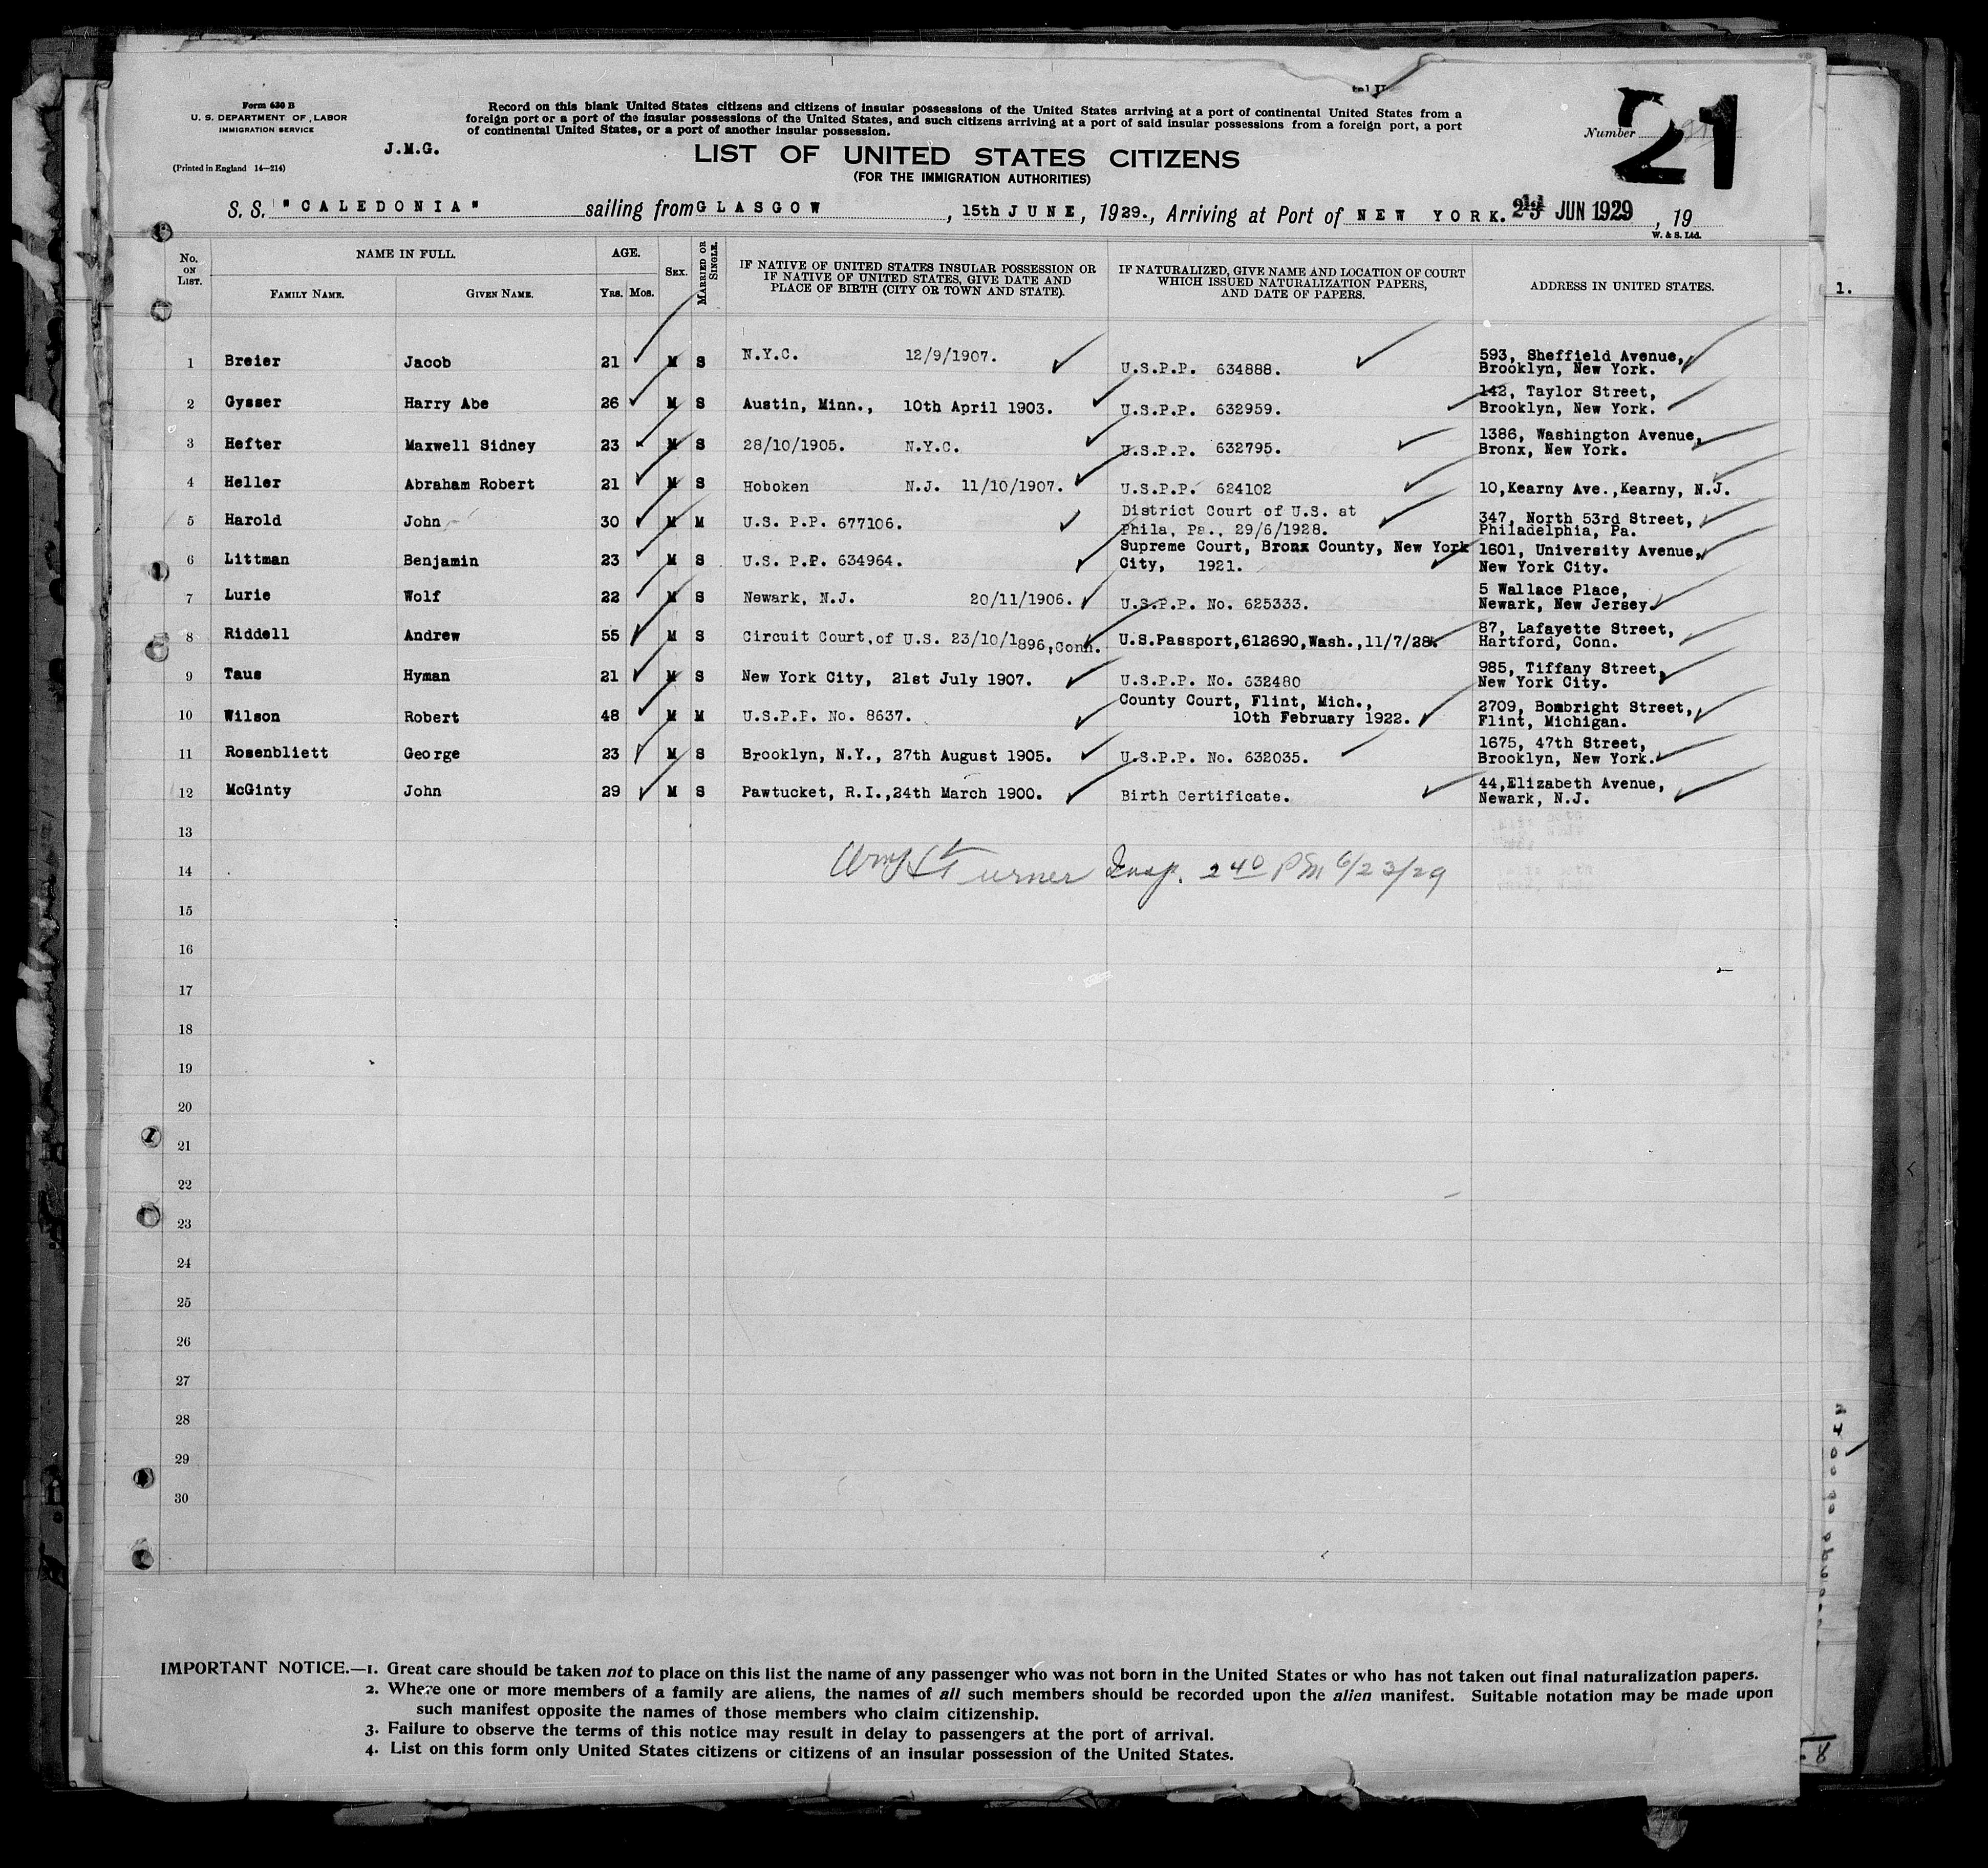 Form 630 B
U. S. DEPARTMENT OF LABOR
IMMIGRATION SERVICE
(Printed in England 14—214)
J.M.G.
Record on this blank United States citizens and citizens of insular possessions of the United States arriving at a port of continental United States from a
foreign port or a port of the insular possessions of the United States, and such citizens arriving at a port of said insular possessions from a foreign port, a port
of continental United States, or a port of another insular possession.
Number
21
LIST OF UNITED STATES CITIZENS
(FOR THE IMMIGRATION AUTHORITIES)
S. S. "CALEDONIA" sailing from GLASGOW, 15th JUNE, 1929., Arriving at Port of NEW YORK. JUN 1929, 19
W. & S. Ltd.
No. ON LIST.
NAME IN FULL.
FAMILY NAME. GIVEN NAME.
AGE.
Yrs. Mos.
SEX.
MARRIED OR SINGLE.
IF NATIVE OF UNITED STATES INSULAR POSSESSION OR
IF NATIVE OF UNITED STATES, GIVE DATE AND
PLACE OF BIRTH (CITY OR TOWN AND STATE).
IF NATURALIZED, GIVE NAME AND LOCATION OF COURT
WHICH ISSUED NATURALIZATION PAPERS,
AND DATE OF PAPERS.
ADDRESS IN UNITED STATES.
1.
1 Breier Jacob 21 M S N.Y.C. 12/9/1907. U.S.P.P. 634888. 593, Sheffield Avenue,
Brooklyn, New York.
2 Gysser Harry Abe 26 M S Austin, Minn., 10th April 1903. U.S.P.P. 632959. 142, Taylor Street,
Brooklyn, New York.
3 Hefter Maxwell Sidney 23 M S 28/10/1905. N.Y.C. U.S.P.P. 632795. 1386, Washington Avenue,
Bronx, New York.
4 Heller Abraham Robert 21 M S Hoboken N.J. 11/10/1907. U.S.P.P. 624102 10,Kearny Ave.,Kearny, N.J.
5 Harold John 30 M M U.S. P.P. 677106. District Court of U.S. at
Phila, Pa., 29/6/1928. 347, North 53rd Street,
Philadelphia, Pa.
6 Littman Benjamin 23 M S U.S. P.P. 634964. Supreme Court, Bronx County, New York
City, 1921. 1601, University Avenue,
New York City.
7 Lurie Wolf 22 M S Newark, N.J. 20/11/1906. U.S.P.P. No. 625333. 5 Wallace Place,
Newark, New Jersey.
8 Riddell Andrew 55 M S Circuit Court,of U.S. 23/10/1896,Conn. U.S.Passport,612690,Wash.,11/7/28. 87, Lafayette Street,
Hartford, Conn.
9 Taus Hyman 21 M S New York City, 21st July 1907. U.S.P.P. No. 632480 985, Tiffany Street,
New York City.
10 Wilson Robert 48 M M U.S.P.P. No. 8637. County Court, Flint, Mich.,
10th February 1922. 2709, Bombright Street,
Flint, Michigan.
11 Rosenbliett George 23 M S Brooklyn, N.Y., 27th August 1905. U.S.P.P. No. 632035. 1675, 47th Street,
Brooklyn, New York.
12 McGinty John 29 M S Pawtucket, R.I.,24th March 1900. Birth Certificate. 44,Elizabeth Avenue,
Newark, N.J.
13
14 Turner Insp. 2 40 PM 6/23/29
15
16
17
18
19
20
21
22
23
24
25
26
27
28
29
30
IMPORTANT NOTICE.—1. Great care should be taken not to place on this list the name of any passenger who was not born in the United States or who has not taken out final naturalization papers.
2. Where one or more members of a family are aliens, the names of all such members should be recorded upon the alien manifest. Suitable notation may be made upon
such manifest opposite the names of those members who claim citizenship.
3. Failure to observe the terms of this notice may result in delay to passengers at the port of arrival.
4. List on this form only United States citizens or citizens of an insular possession of the United States.